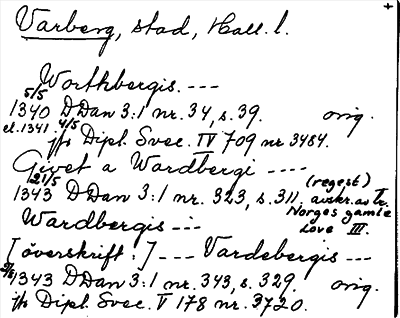 +
Varberg, stad, Hall. l.
Worthbergis. ---
5/5
1340 DDan 3:1 nr. 34, s. 39. orig.
el. 1341. 4/5
jfr Dipl. Svec. IV 709 nr 3484.
Givet a Wardbergi ----
21/5 (regest)
1343 DDan 3:1 nr. 323, s. 311. avskr. av tr.
Norges gamle
Love III.
Wardbergis ---
[överskrift:] --- Vardebergis ---
1343 DDan 3:1 nr. 343, s. 329. orig.
jfr Dipl. Svec. V 178 nr. 3720.